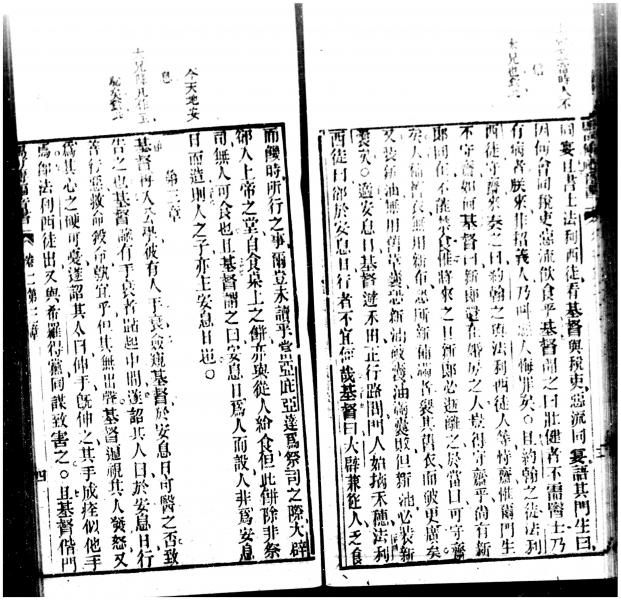 同宴且書士法利西徒看基督與稅吏惡流同宴謂其門生曰
因何會同稅吏惡流飲食乎基督聞之曰壯健者不需醫士乃
有病者朕來非招義人乃叫惡人悔罪矣○且約翰之徒法利
西徒守齋來奏之曰約翰之徒法利西徒人等守齋惟爾門生
不守齋如何基督曰新郎還在婚房之人豈得守齋乎尚有新
郎同在不能禁食惟將來之日新郎必逝離之於當日可守齋
矣人補舊衣無用新布恐所新補綴者裂其舊衣而破更廣矣
又裝新油無用舊革囊恐新油破囊油漏囊敗但新油必裝新
囊矣○適安息日基督進禾田正行路間門人始摘禾穗法利
西徒曰卻於安息日行者不宜焉哉基督曰大辟兼從人乏食
今天地安
息
而饑時所行之事爾豈未讀乎當亞庇亞達爲祭司之際大辟
卻入上帝之堂自食桌上之餅亦與從人給食但此餅除非祭
司無人可食也且基督謂之曰安息日爲人而設人非爲安息
日而造則人之子亦主安息日也○
第三章
基督再入公學彼有人手衰僉窺基督於安息日可醫之否致
告之也基督諭有手衰者站起中間遂詔其人曰於安息日行
善行惡救命殺命孰宜乎但其無出聲基督遍視其人憤怒又
爲其心之硬可憂遂詔其人曰伸手也旣伸之其手成痊似他手
焉但法利西徒出又與希羅得黨同謀致害之○且基督偕門
卷二第三章 四